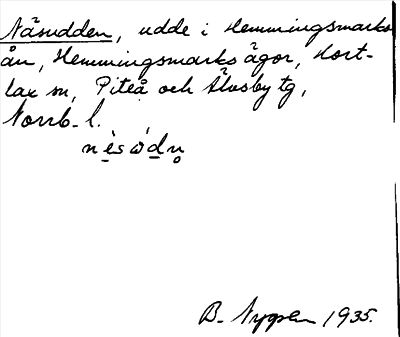 Näsudden, udde i Hemmingsmarks
ån, Hemmingsmarks ägor, Hort-
lax sn, Piteå och Älvsby tg,
Norrb. l.
nèsẃdn̥
B. Nygren 1935.